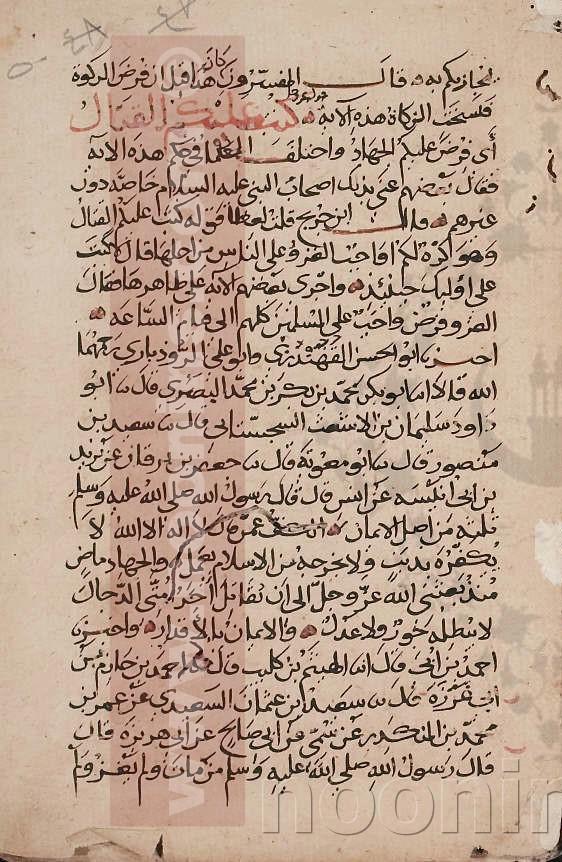 يجازيكم به قال المفسرون كان هذا قبل ان فرض الزكوة
فنسخت الزكاة هذه الآية قوله عز وجل كتب عليكم القتال
أي فرض عليكم الجهاد واختلف العلما في حكم هذه الاية
فقال بعضهم عني بذلك اصحاب النبي عليه السلام خاصة دون
غيرهم قال ابن جريج قلت لعطا قوله كتب عليكم القتال
وهو كره لكم اواجب الغزو على الناس من اجلها قال لا كتب
على اوليك حينئذ واجرى بعضهم الاية على ظاهرها فقال
الغزو فرض واجب على المسلمين كلهم الى قيام الساعة
اخبرنا ابو الحسن القهندزي وابو علي الروذباري رحمهما
الله قالا انا ابو بكر محمد بن بكر بن محمد البصري قال نا ابو
داود سليمان بن الاشعث السجستاني قال نا سعيد بن
منصور قال نا ابو معوية قال نا جعفر بن برقان عن يزيد
بن ابي نشبة عن انس قال قال رسول الله صلى الله عليه وسلم
ثلثة من اصل الايمان الكف عمن قال لا اله الا الله لا
يكفره بذنب ولا يخرجه من الاسلام بعمل والجهاد ماض
منذ بعثني الله عز وجل الى ان يقاتل اخر امتي الدجال
لا يبطله جور ولا عدل والايمان بالاقدار واخبرني
احمد بن ابي قال انا الهيثم بن كليب قال نا احمد بن حازم بن
ابي غرزة قال نا سعيد بن عثمان السعيدي عن عمر بن
محمد بن المنكدر عن سمي عن ابي صالح عن ابي هريرة قال
قال رسول الله صلى الله عليه وسلم من مات ولم يغز ولم
noonin